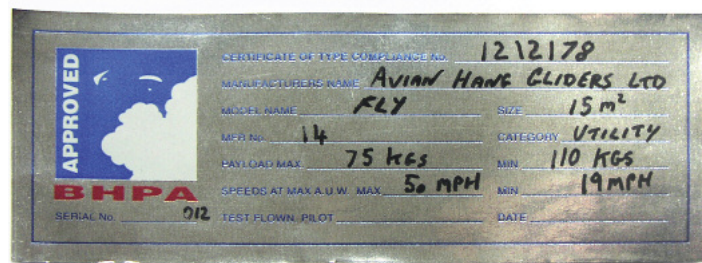 APPROVED
BHPA
CERTIFICATE OF TYPE COMPLIANCE No. 1212178
MANUFACTURERS NAME AVIAN HANG GLIDERS LTD
MODEL NAME FLY SIZE 15 m²
MFR No. 14 CATEGORY UTILITY
PAYLOAD MAX 75 KGS MIN 110 KGS
SPEEDS AT MAX A.U.W. MAX 50 MPH MIN 19 MPH
SERIAL No. 012 TEST FLOWN, PILOT DATE